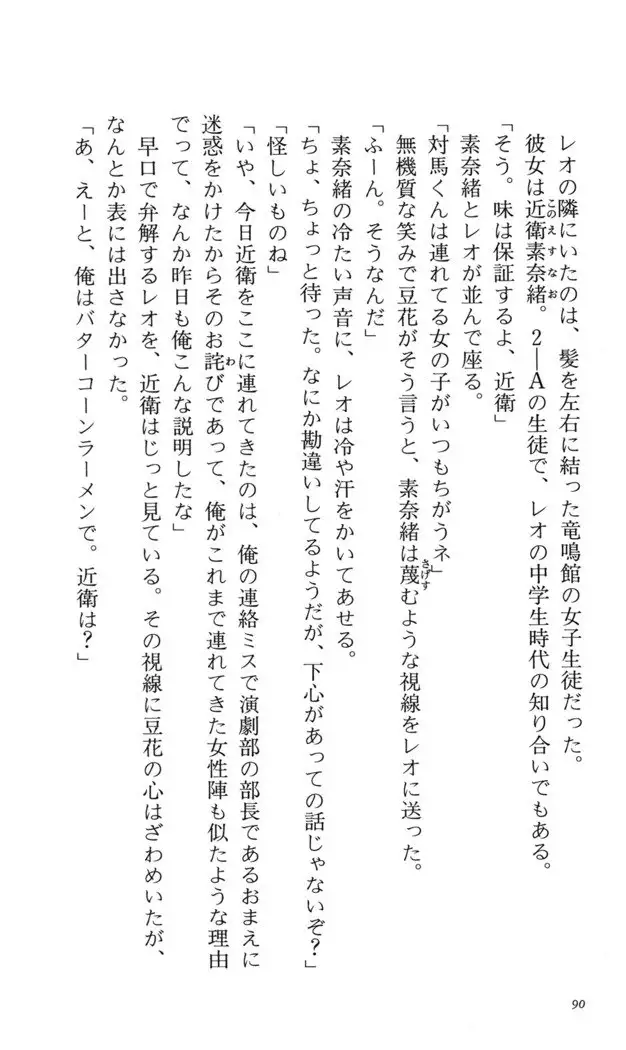 レオの隣にいたのは、髪を左右に結った竜鳴館の女子生徒だった。
彼女は近衛素奈緒。2―Aの生徒で、レオの中学生時代の知り合いでもある。
このえすなお
「そう。味は保証するよ、近衛」
素奈緒とレオが並んで座る。
「対馬くんは連れてる女の子がいつもちがうネ」
無機質な笑みで豆花がそう言うと、素奈緒は蔑むような視線をレオに送った。
さげす
「ふーん。そうなんだ」
素奈緒の冷たい声音に、レオは冷や汗をかいてあせる。
「ちょ、ちょっと待った。なにか勘違いしてるようだが、下心があっての話じゃないぞ?」
「怪しいものね」
「いや、今日近衛をここに連れてきたのは、俺の連絡ミスで演劇部の部長であるおまえに
迷惑をかけたからそのお詫びであって、俺がこれまで連れてきた女性陣も似たような理由
わ
でって、なんか昨日も俺こんな説明したな」
早口で弁解するレオを、近衛はじっと見ている。その視線に豆花の心はざわめいたが、
なんとか表には出さなかった。
「あ、えーと、俺はバターコーンラーメンで。近衛は?」
90